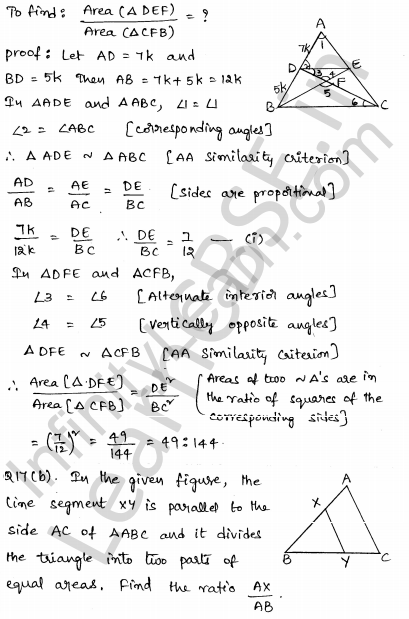 To find: Area (△ DEF) / Area (△ CFB) = ?
proof: Let AD = 7k and
BD = 5k Then AB = 7k+5k = 12k
In △ADE and △ABC, ∠1 = ∠1
∠2 = ∠ABC [corresponding angles]
∴ △ ADE ~ △ ABC [AA Similarity Criterion]
AD/AB = AE/AC = DE/BC [sides are proportional]
7k/12k = DE/BC ∴ DE/BC = 7/12 — (i)
In △DFE and △CFB,
∠3 = ∠6 [Alternate interior angles]
∠4 = ∠5 [Vertically opposite angles]
△ DFE ~ △CFB [AA Similarity Criterion]
∴ Area [△.DFE] / Area [△ CFB] = DE² / BC² [Areas of two ~ △'s are in
the ratio of squares of the
corresponding sides]
= (7/12)² = 49/144 = 49:144.
Q17(b). In the given figure, the
line segment XY is parallel to the
side AC of △ABC and it divides
the triangle into two parts of
equal areas. Find the ratio AX/AB.
A
1
7k
D
2
3
4
E
F
5k
5
B
6
C
A
X
B
Y
C
Infinity Learn
Learn CBSE.in